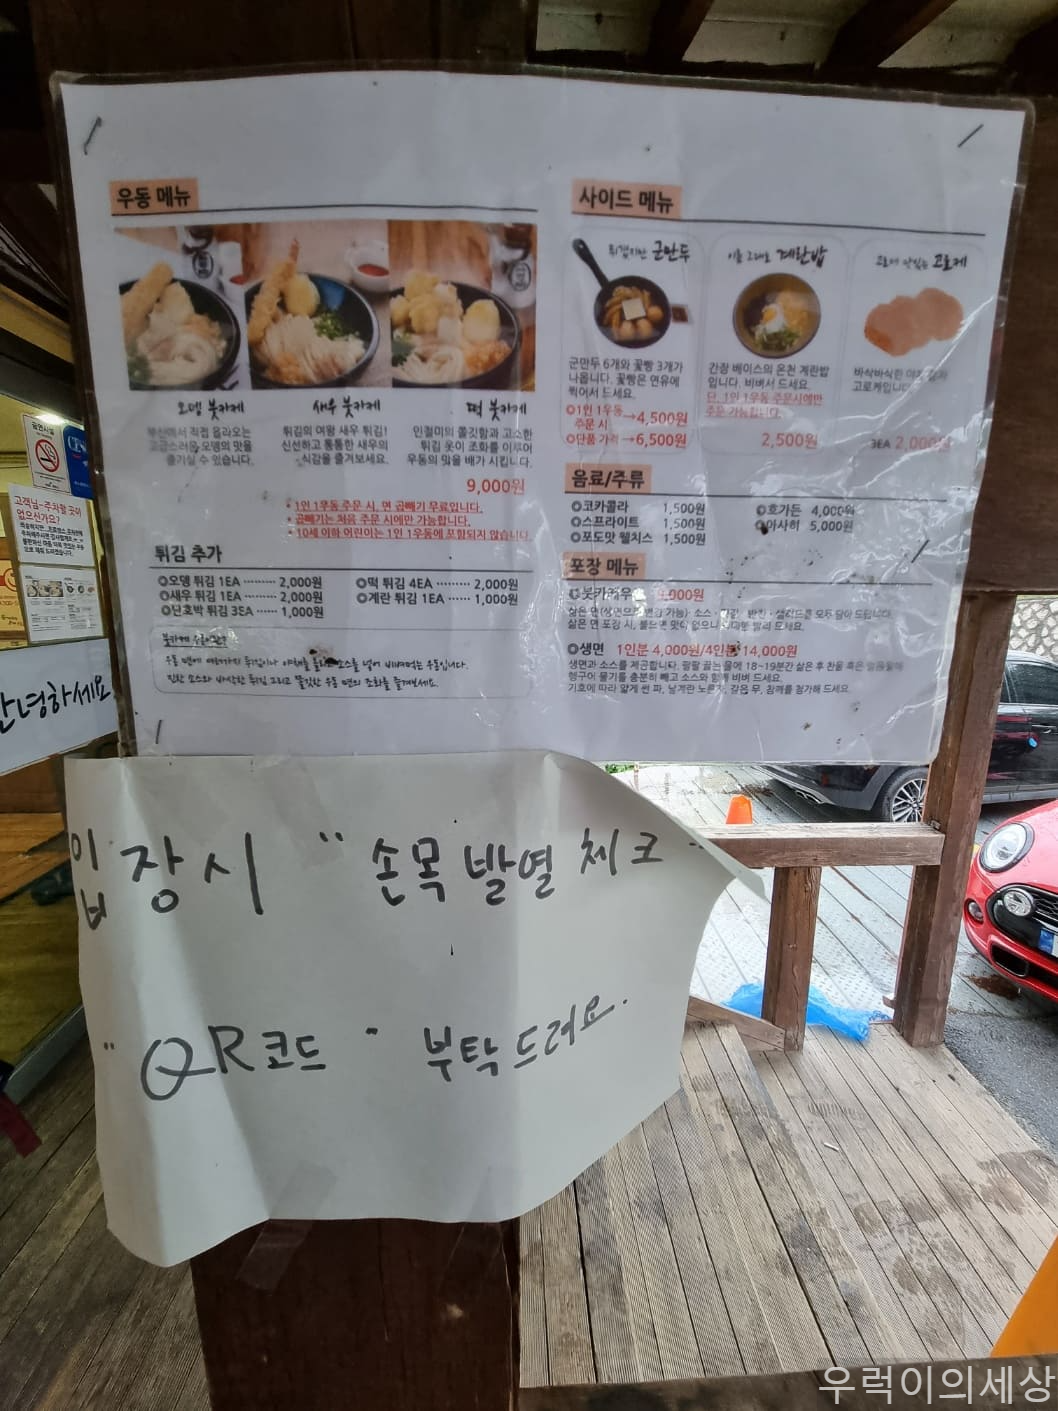 우동 메뉴
오뎅 붓카케
새우 붓카케
떡 붓카케
부산에서 직접 올라오는
고급스러운 오뎅의 맛을
즐기실 수 있습니다.
튀김의 여왕 새우 튀김!
신선하고 통통한 새우의
식감을 즐겨보세요.
인절미의 쫄깃함과 고소한
튀김 옷이 조화를 이루어
우동의 맛을 배가 시킵니다.
9,000원
• 1인 1우동 주문 시, 면 곱빼기 무료입니다.
• 곱빼기는 처음 주문 시에만 가능합니다.
• 10세 이하 어린이는 1인 1우동에 포함되지 않습니다.
튀김 추가
◎오뎅 튀김 1EA ········· 2,000원
◎새우 튀김 1EA ········· 2,000원
◎단호박 튀김 3EA ······ 1,000원
◎떡 튀김 4EA ········· 2,000원
◎계란 튀김 1EA ······ 1,000원
우동 면에 여러가지 튀김이나 야채를 소스를 넣어 비벼먹는 우동입니다.
진한 소스와 바삭한 튀김 그리고 쫄깃한 우동 면의 조화를 즐겨보세요.
사이드 메뉴
군만두
이름 그대로 계란밥
고로케 맛있는 고로케
군만두 6개와 꽃빵 3개가
나옵니다. 꽃빵은 연유에
찍어서 드세요.
◎1인 1우동
주문 시 →4,500원
◎단품 가격 →6,500원
간장 베이스의 온천 계란밥
입니다. 비벼서 드세요.
단, 1인 1우동 주문시에만
주문 가능합니다.
2,500원
바삭바삭한
고로케입니다
3EA 2,000원
음료/주류
◎코카콜라 1,500원
◎스프라이트 1,500원
◎포도맛 웰치스 1,500원
◎호가든 4,000원
◎아사히 5,000원
포장 메뉴
삶은 면 포장 시, 불으면 맛이 없으니 빨리 드세요.
◎생면 1인분 4,000원/4인분 14,000원
생면과 소스를 제공합니다. 팔팔 끓는 물에 18~19분간 삶은 후 찬물 혹은 얼음물에
헹구어 물기를 충분히 빼고 소스와 함께 비벼 드세요.
기호에 따라 얇게 썬 파, 날계란 노른자, 갈은 무, 참깨를 첨가해 드세요.
금연시설
고객님~주차할 곳이
없으신가요?
안녕하세요
입장시 "손목 발열 체크"
"QR코드" 부탁드려요.
우럭이의세상